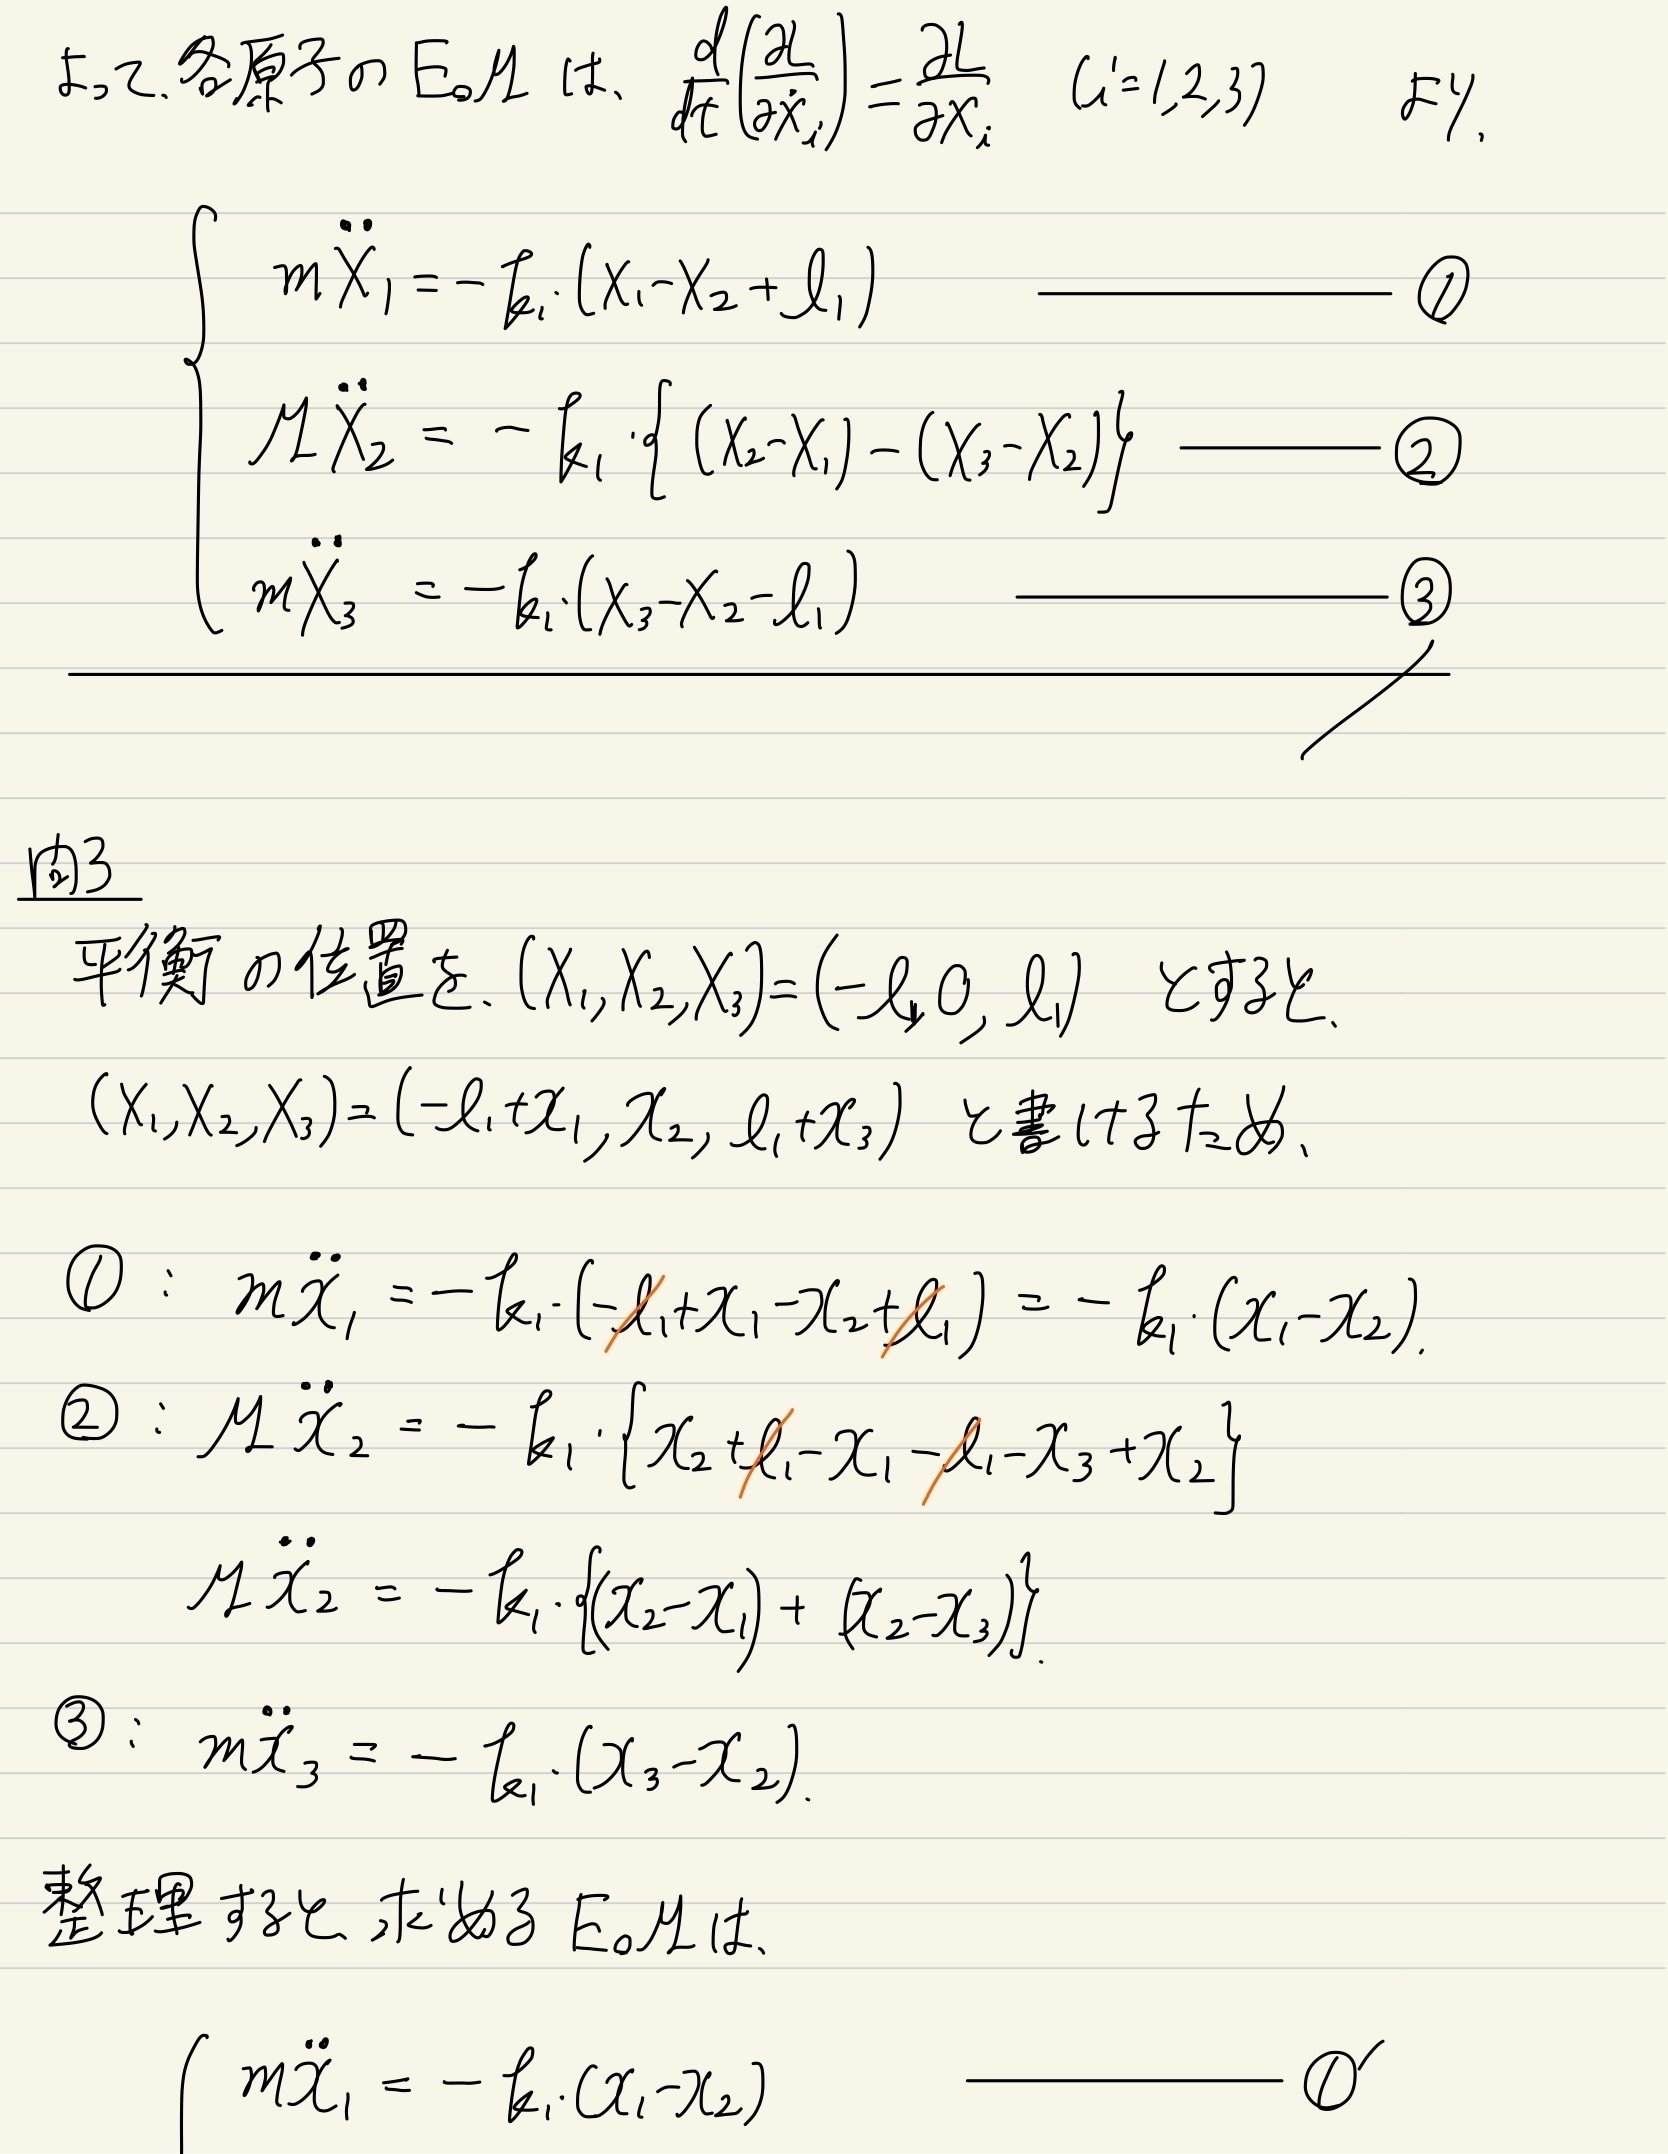 よって、各原子のEoMは、 d/dt(∂L/∂Ẋᵢ) = ∂L/∂Xᵢ (i=1,2,3) より、
mẌ₁ = -k₁·(X₁-X₂+l₁) ―― ①
MẌ₂ = -k₁·{(X₂-X₁)-(X₃-X₂)} ―― ②
mẌ₃ = -k₁·(X₃-X₂-l₁) ―― ③
問3
平衡の位置を、(X₁,X₂,X₃)=(-l₁,0,l₁) とすると、
(X₁,X₂,X₃)=(-l₁+x₁,x₂,l₁+x₃) と書けるため、
① : mẍ₁ = -k₁·(-l₁+x₁-x₂+l₁) = -k₁·(x₁-x₂).
② : Mẍ₂ = -k₁·{x₂+l₁-x₁-l₁-x₃+x₂}
Mẍ₂ = -k₁·{(x₂-x₁)+(x₂-x₃)}.
③ : mẍ₃ = -k₁·(x₃-x₂).
整理すると、求めるEoMは、
mẍ₁ = -k₁·(x₁-x₂) ―― ①′